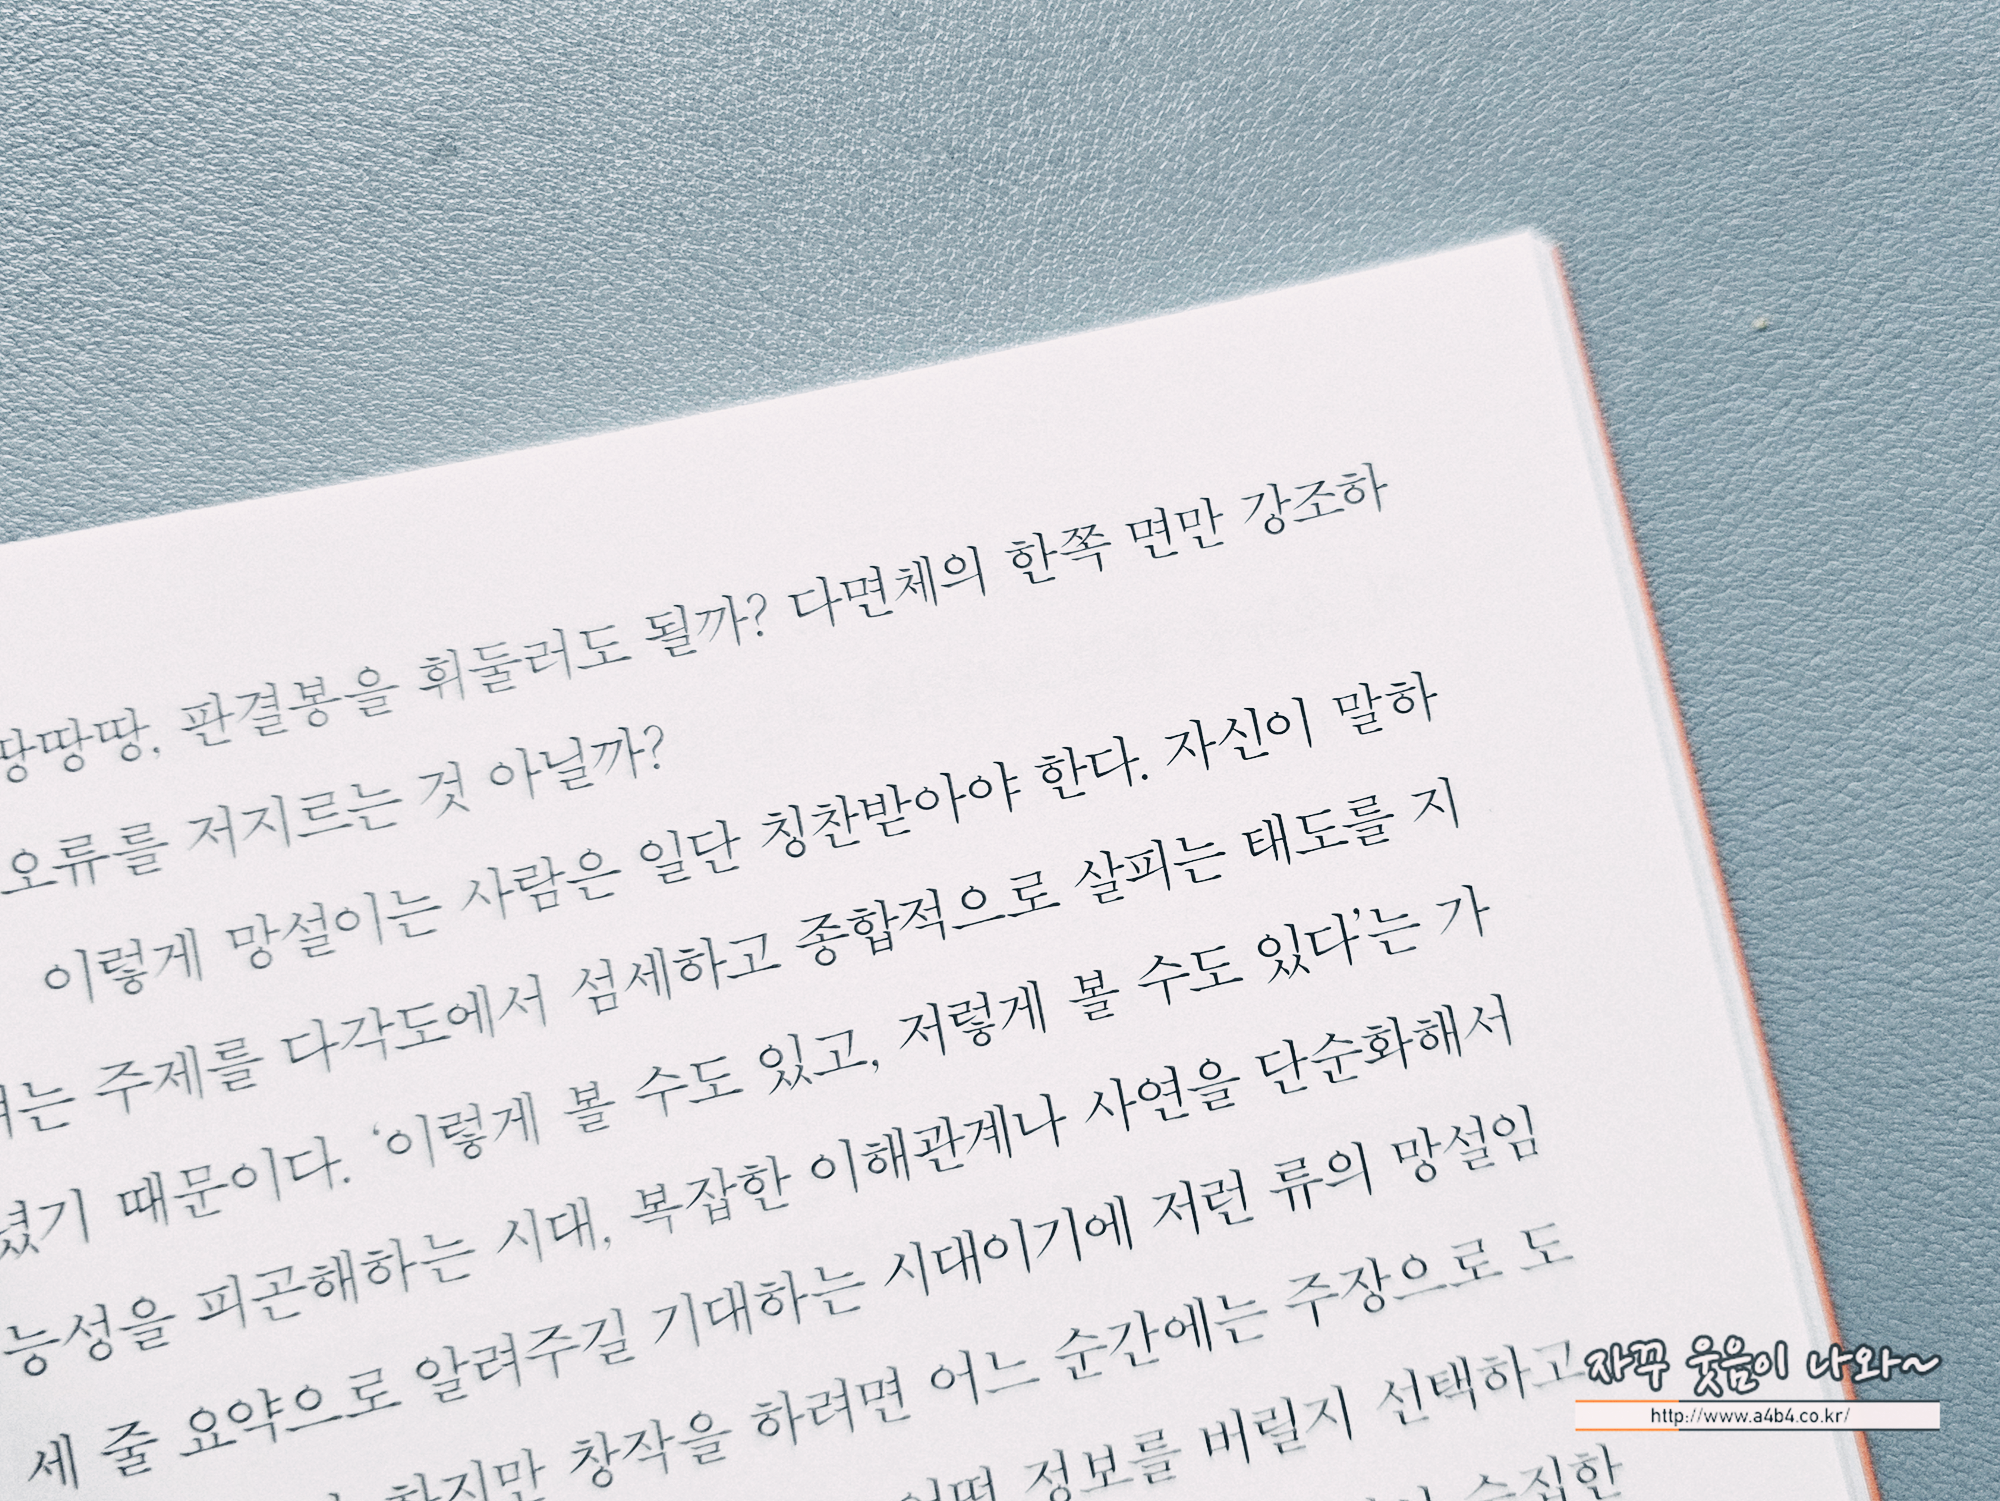 땅땅땅, 판결봉을 휘둘러도 될까? 다면체의 한쪽 면만 강조하
오류를 저지르는 것 아닐까?
이렇게 망설이는 사람은 일단 칭찬받아야 한다. 자신이 말하
려는 주제를 다각도에서 섬세하고 종합적으로 살피는 태도를 지
녔기 때문이다. ‘이렇게 볼 수도 있고, 저렇게 볼 수도 있다’는 가
능성을 피곤해하는 시대, 복잡한 이해관계나 사연을 단순화해서
세 줄 요약으로 알려주길 기대하는 시대이기에 저런 류의 망설임
하지만 창작을 하려면 어느 순간에는 주장으로 도
어떤 정보를 버릴지 선택하고
수집한
자꾸 웃음이 나와~
http://www.a4b4.co.kr/